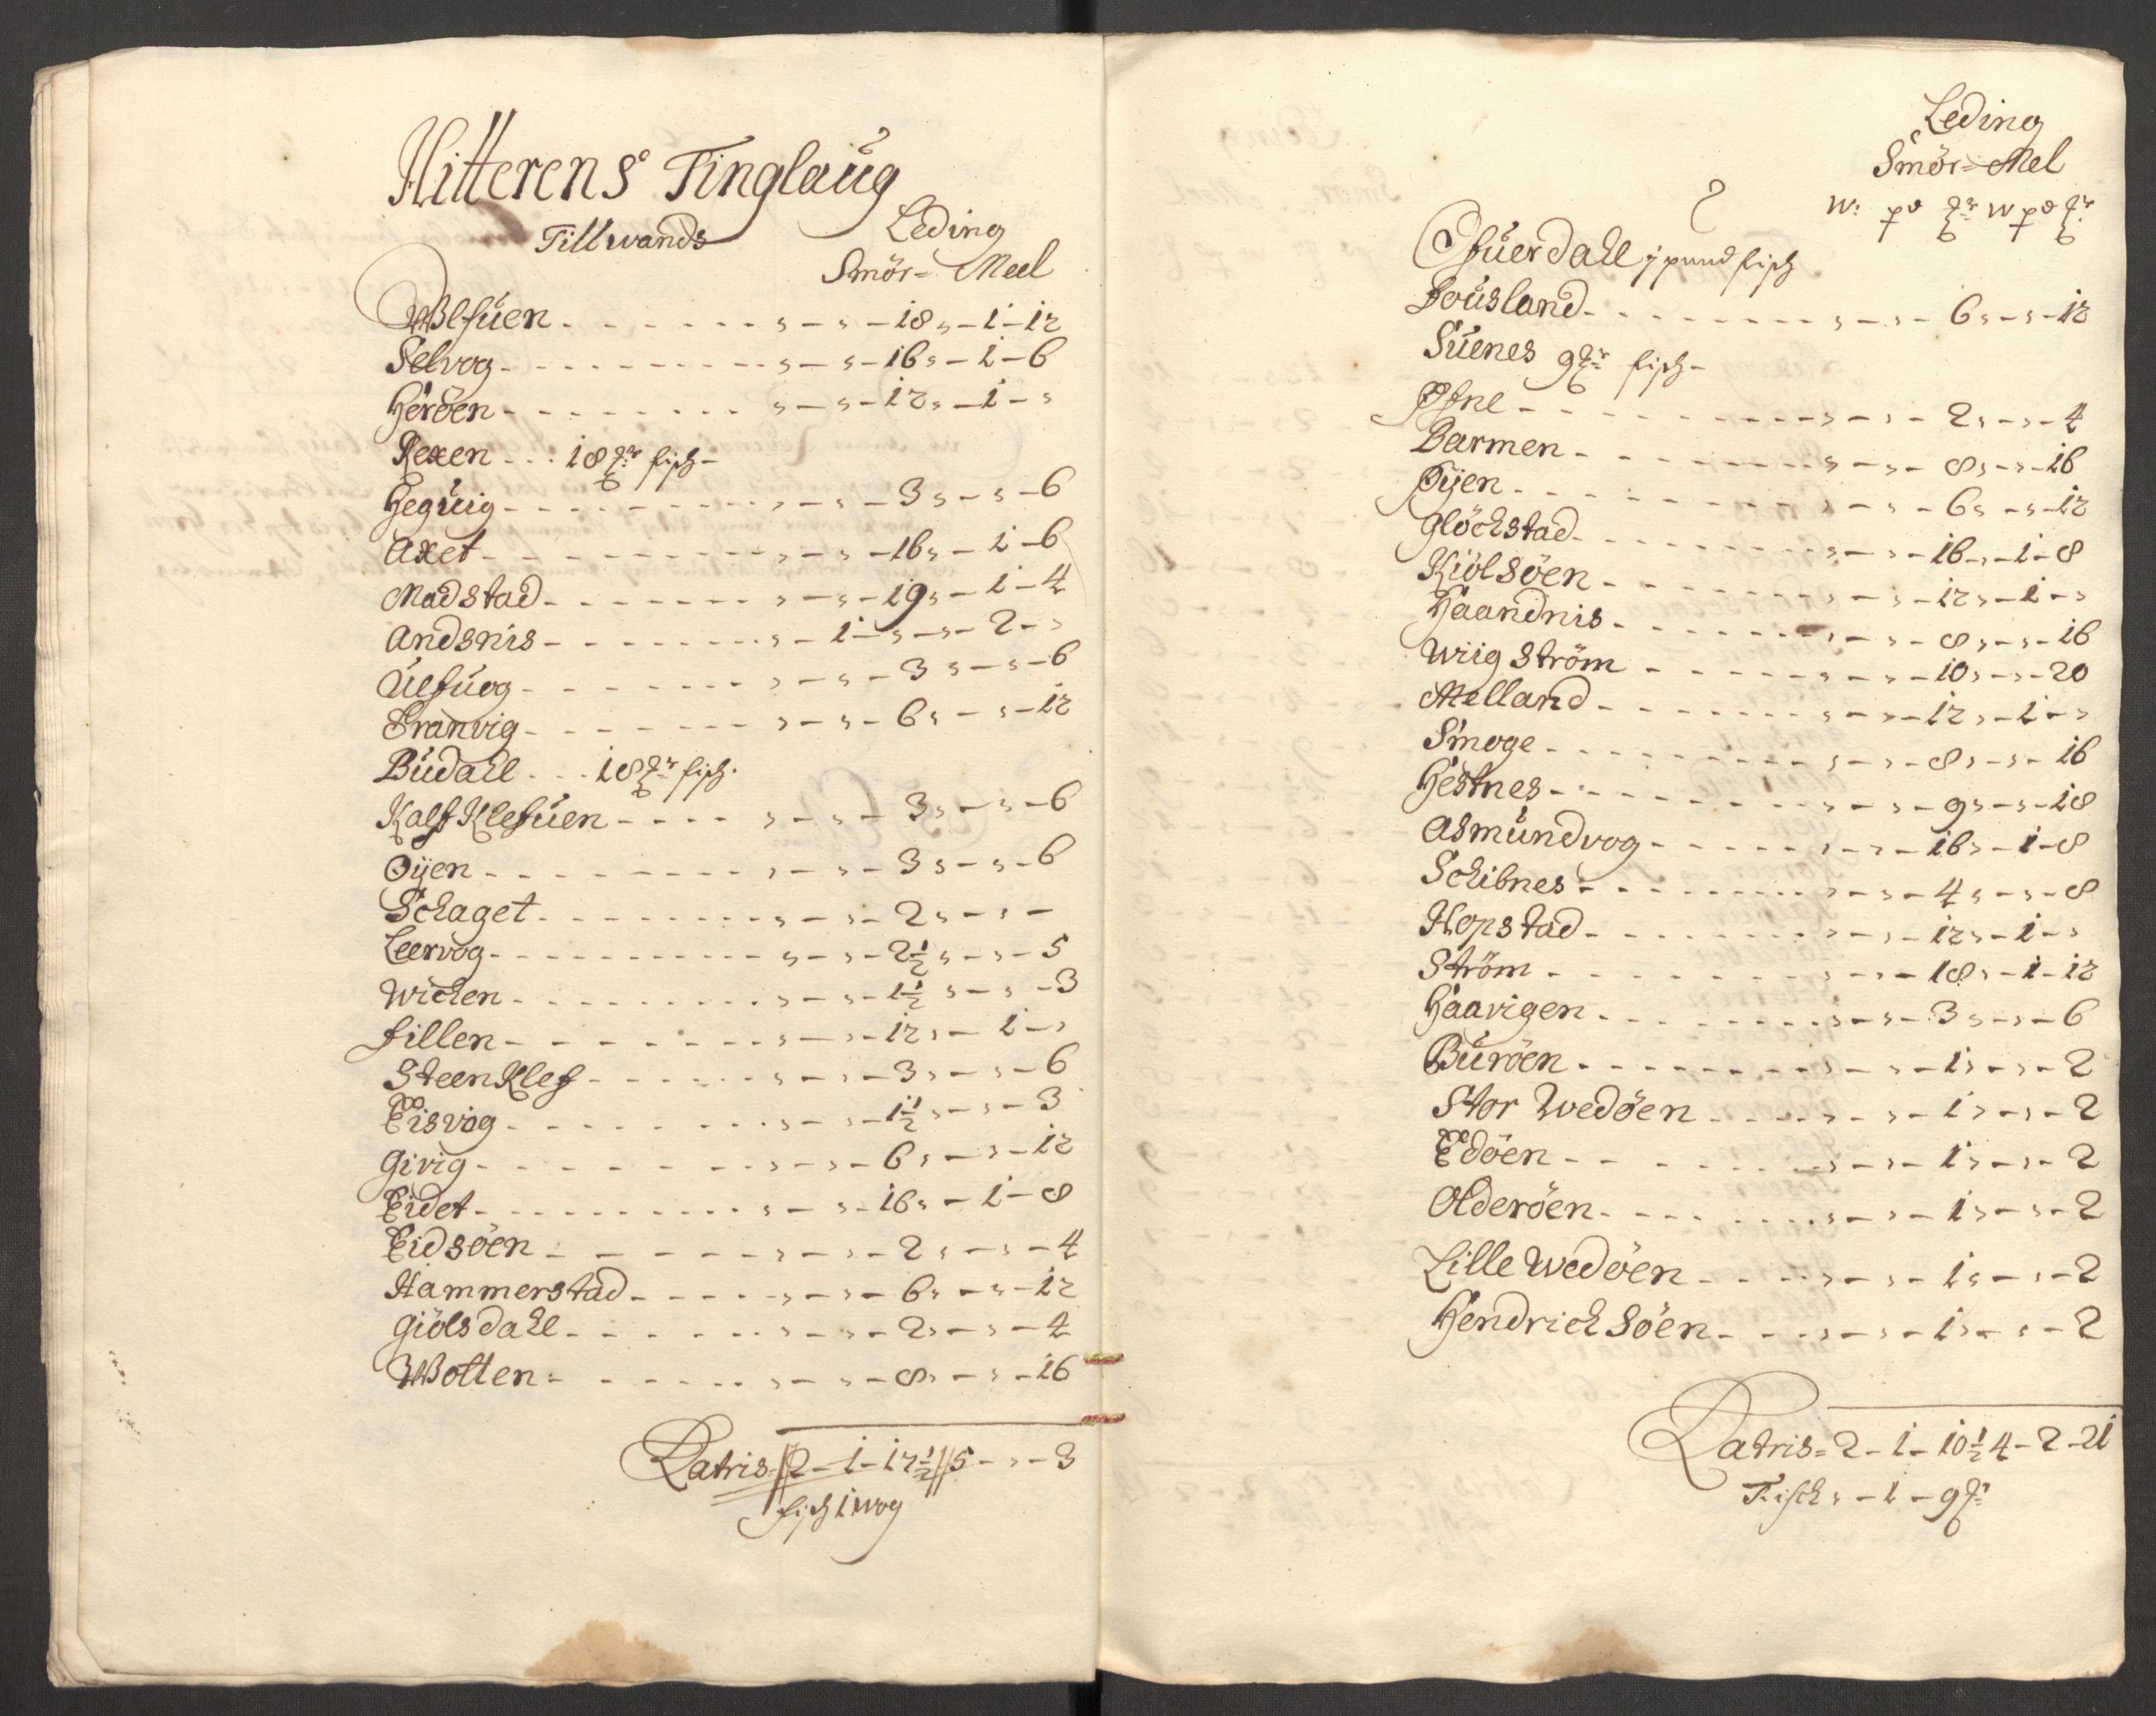 Hitterens Tinglaug
Tillwands Leding
Smör= Meel
Ulfuen - - - - - - „ - „ - 18 „ - 1 - 12
Selvog - - - - - - „ - „ - 16 „ - 1 - 6
Heröen - - - - - - „ - „ - 12 „ - 1 - „
Rexen - - - 18 fisch -
Heguig - - - - - - „ - „ - 3 „ - „ - 6
Axet - - - - - - „ - „ - 16 „ - 1 - 6
Madstad - - - - - - „ - „ - 19 „ - 1 - 4
Andsnis - - - - - - „ - 1 - „ - „ - 2 - „
Ulfuog - - - - - - „ - „ - 3 „ - „ - 6
Tranvig - - - - - - „ - „ - 6 „ - „ - 12
Budall - - - 18 fisch.
Kalf Klefuen - - - - „ - „ - 3 „ - „ - 6
Öijen - - - - - - „ - „ - 3 „ - „ - 6
Schaget - - - - - - „ - „ - 2 „ - „ -
Leervog - - - - - - „ - „ - 2½ „ - „ - 5
Wichen - - - - - - „ - „ - 1½ „ - „ - 3
fillen - - - - - - „ - „ - 12 „ - 1 - „
Steen Klef - - - - - - „ - „ - 3 „ - „ - 6
Eisvog - - - - - - „ - „ - 1½ „ - „ - 3
Givig - - - - - - „ - „ - 6 „ - „ - 12
Eidet - - - - - - „ - „ - 16 „ - 1 - 8
Eidsöen - - - - - - „ - „ - 2 „ - „ - 4
Hammerstad - - - - „ - „ - 6 „ - „ - 12
Giölsdall - - - - - - „ - „ - 2 „ - „ - 4
Wollen - - - - - - „ - „ - 8 „ - „ - 16
Latris 2 - 1 - 17½ 5 - „ - 3
fisch 1 wog
Leding
Smör= Mel
W: pd W pd
Ofuerdall j pund fisch
Fousland - - - - - - „ - „ - 6 „ - „ - 12
Suenes 9 fisch -
Öfne - - - - - - „ - „ - 2 „ - „ - 4
Barmen - - - - - - „ - „ - 8 „ - „ - 16
Öijen - - - - - - „ - „ - 6 „ - „ - 12
Glöchstad - - - - - - „ - „ - 16 „ - 1 - 8
Kiölsöen - - - - - - „ - „ - 12 „ - 1 - „
Haandnis - - - - - - „ - „ - 8 „ - „ - 16
Wiigström - - - - - - „ - „ - 10 „ - „ - 20
Melland - - - - - - „ - „ - 12 „ - 1 - „
Smoge - - - - - - „ - „ - 8 „ - „ - 16
Hestnes - - - - - - „ - „ - 9 „ - „ - 18
Asmundvog - - - - - „ - „ - 16 „ - 1 - 8
Schibnes - - - - - - „ - „ - 4 „ - „ - 8
Hopstad - - - - - - „ - „ - 12 „ - 1 - „
Ström - - - - - - „ - „ - 18 „ - 1 - 12
Haavigen - - - - - - „ - „ - 3 „ - „ - 6
Buröen - - - - - - „ - „ - 1 „ - „ - 2
Stor Wedöen - - - - „ - „ - 1 „ - „ - 2
Edöen - - - - - - „ - „ - 1 „ - „ - 2
Olderöen - - - - - - „ - „ - 1 „ - „ - 2
Lille Wedöen - - - - „ - „ - 1 „ - „ - 2
Hendrichsöen - - - - „ - „ - 1 „ - „ - 2
Latris = 2 - 1 - 10½ 4 - 2 - 21
Fisch „ - 1 - 9